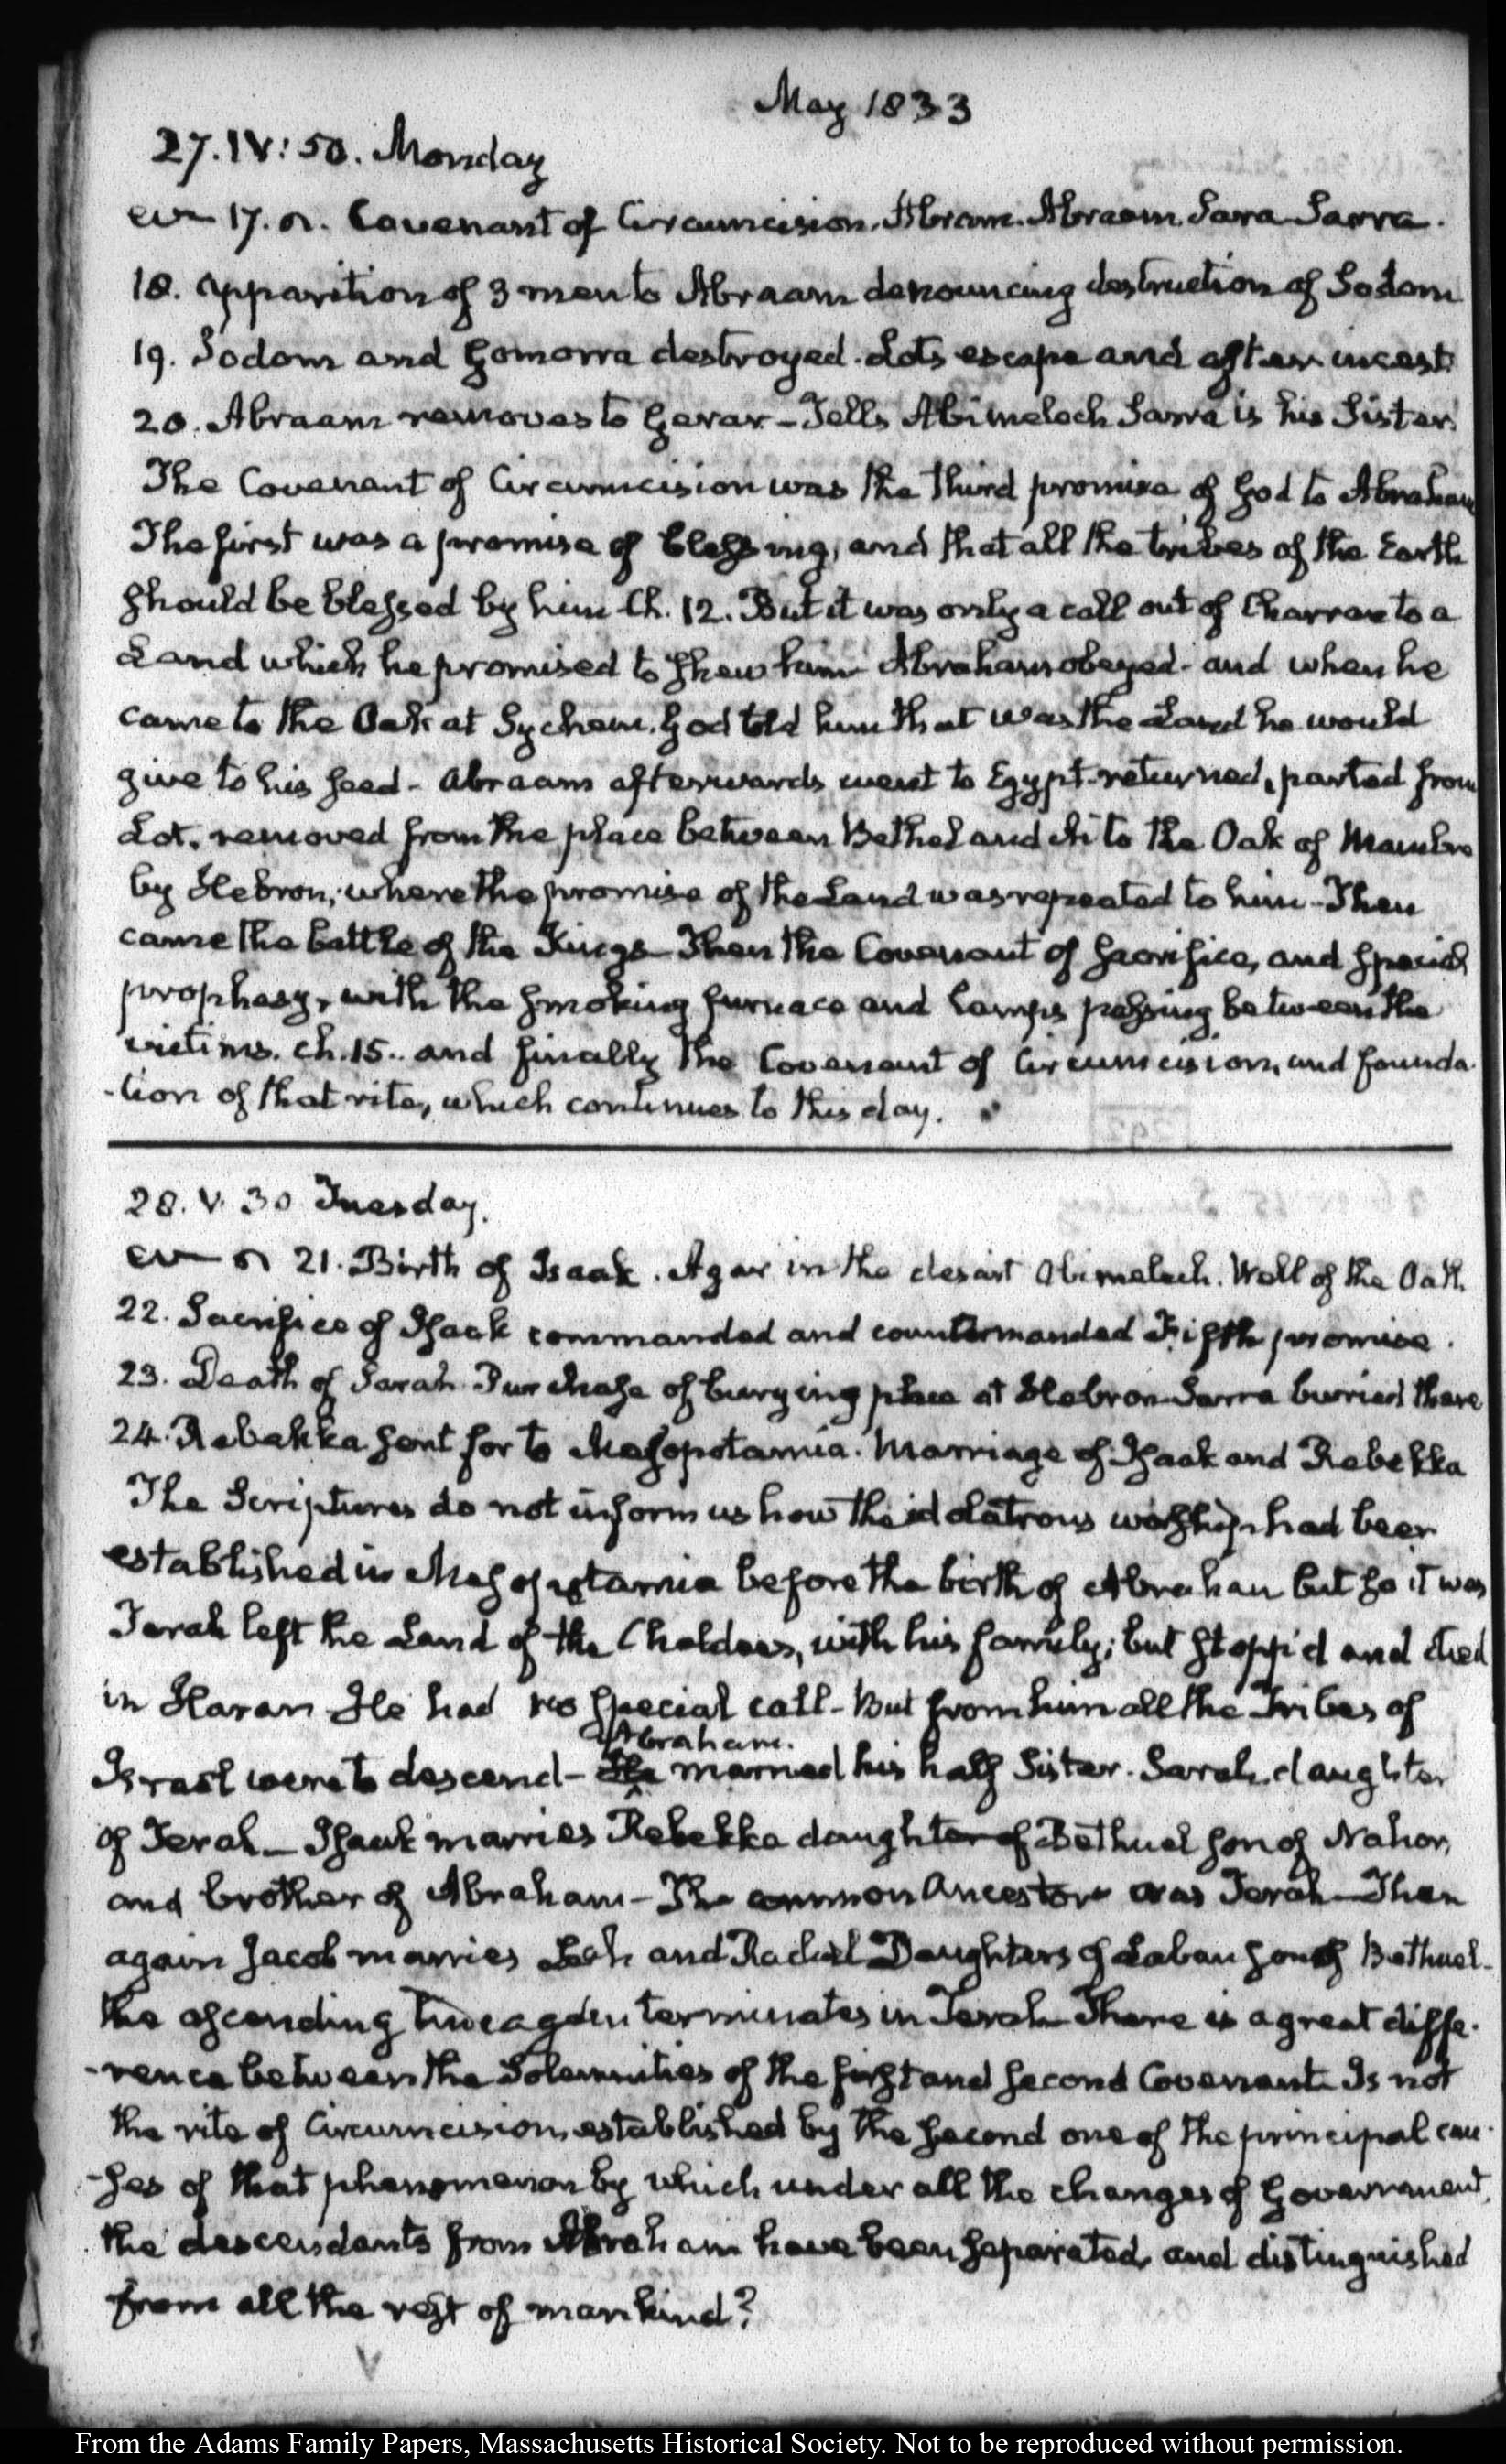 May 1833
27. IV: 50. Monday
17. Covenant of Circumcision. Abram. Abraam. Sara Sarra.
18. Apparition of 3 men to Abraam denouncing destruction of Sodom
19. Sodom and Gomorra destroyed. Lots escape and after incest
20. Abraam removes to Gerar – Tells Abimelech Sarra is his Sister.
The Covenant of Circumcision was the third promise of God to Abraham
The first was a promise of blessing, and that all the tribes of the Earth
should be blessed by him Ch. 12. But it was only a call out of Charran to a
Land which he promised to shew him Abraham obeyed – and when he
came to the Oak at Sychem. God told him that was the Land he would
give to his seed – Abraam afterwards went to Egypt – returned, parted from
Lot, removed from the place between Bethel and Ai to the Oak of Mambre
by Hebron; where the promise of the Land was repeated to him – Then
came the battle of the Kings – Then the Covenant of Sacrifice, and special
prophesy, with the smoking furnace and lamps passing between the
victims. ch. 15.. and finally the Covenant of Circumcision, and founda-
-tion of that rite, which continues to this day.
28. V. 30 Tuesday.
21. Birth of Isaak. Agar in the desart Abimelech. Well of the Oath.
22. Sacrifice of Isaak commanded and countermanded Fifth promise.
23. Death of Sarah Purchase of burying place at Hebron – Sarra buried there
24. Rebekka sent for to Mesopotamia. Marriage of Isaak and Rebekka
The Scriptures do not inform us how the idolatrous worship had been
established in Mesopotamia before the birth of Abraham but so it was
Terah left the Land of the Chaldees, with his family; but stopp'd and died
in Haran He had no special call – But from him all the Tribes of
Abraham.
Israel were to descend – He married his half Sister. Sarah. daughter
of Terah – Isaak marries Rebekka daughter of Bethuel son of Nahor,
and brother of Abraham – The common Ancestor was Terah – Then
again Jacob marries Leah and Rachel Daughters of Laban son of Bethuel –
the ascending line again terminates in Terah – There is a great diffe-
-rence between the Solemnities of the first and second Covenant – Is not
the rite of Circumcision, established by the second one of the principal cau-
-ses of that phenomenon by which under all the changes of Government,
the descendants from Abraham have been separated, and distinguished
from all the rest of mankind?
From the Adams Family Papers, Massachusetts Historical Society. Not to be reproduced without permission.